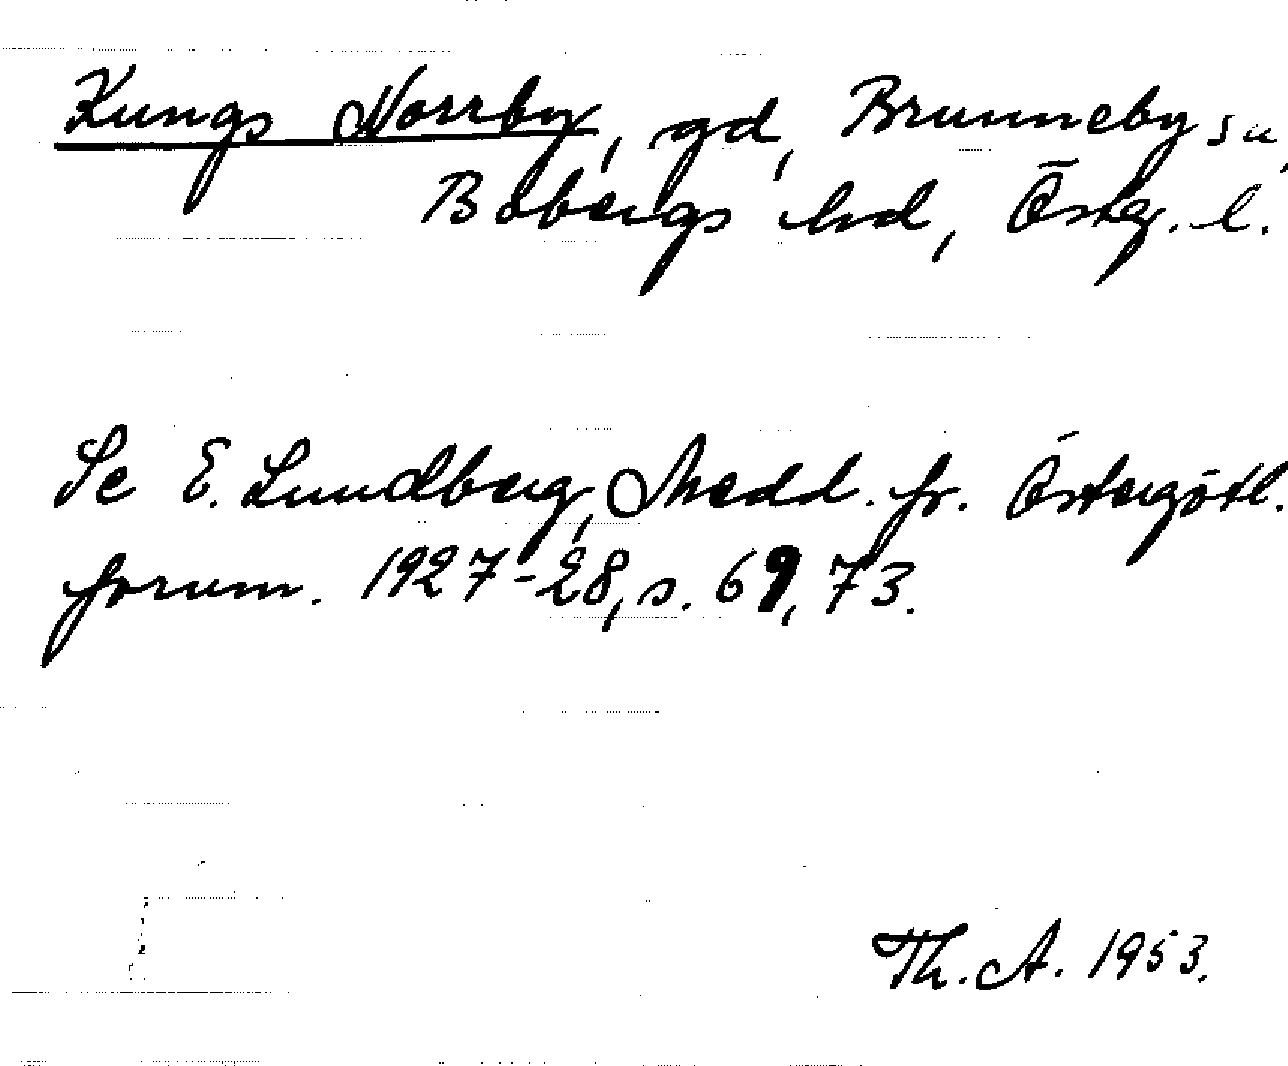 Kungs Norrby, gd, Brunneby sn,
Bobergs hd, Österg. l.
Se E. Lundberg, Medd. fr. Östergötl.
fornm. 1927-28, s. 69, 73.
Th. A. 1953.